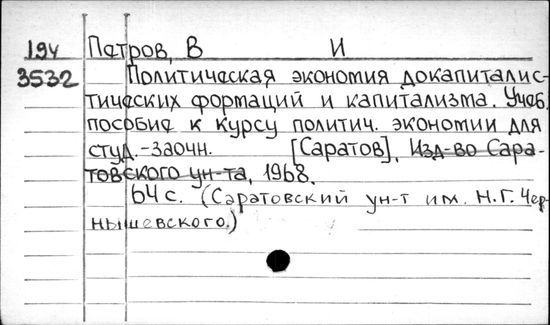 194 Петров, В И
3532 Политическая экономия докапиталис-
тических формаций и капитализма. Учеб.
пособие к курсу политич. экономии для
студ.-заочн. [Саратов], Изд-во Сара-
товского ун-та, 1968.
64 с. (Саратовский ун-т им. Н.Г. Чер-
нышевского.)